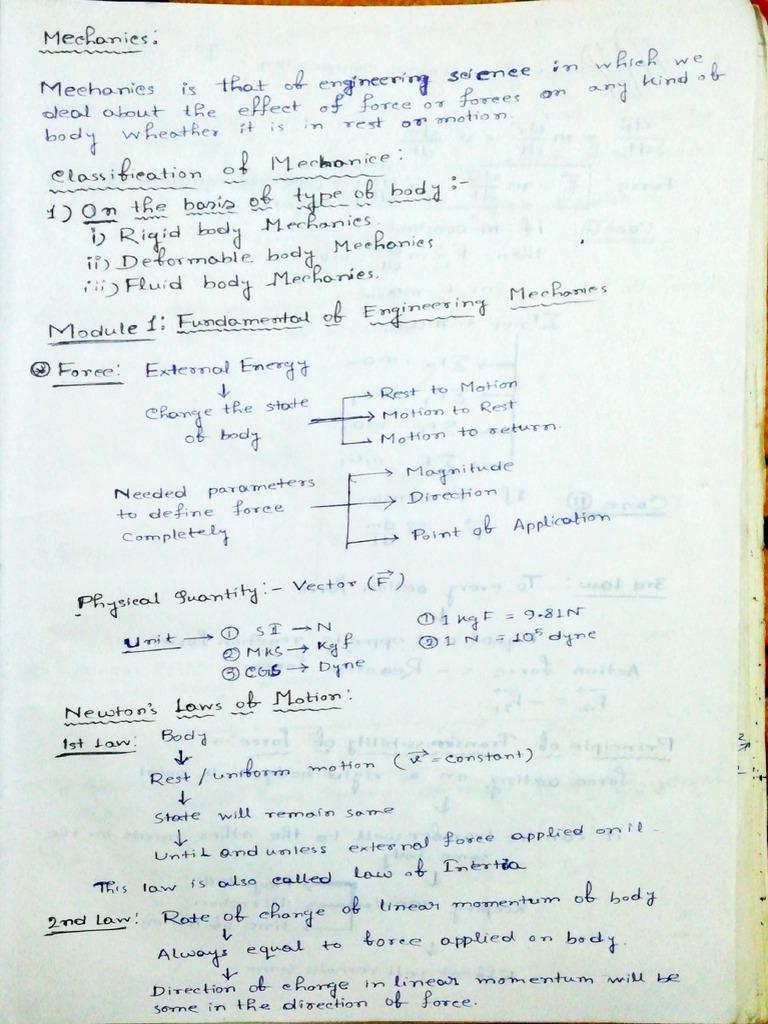 Mechanics:
Mechanics is that of engineering science in which we
deal about the effect of force or forces on any kind of
body wheather it is in rest or motion.
Classification of Mechanice:
1) On the basis of type of body :-
i) Rigid body Mechanics.
ii) Deformable body Mechanics
iii) Fluid body Mechanics.
Module 1: Fundamental of Engineering Mechanics
Force: External Energy
↓
Change the state of body → Rest to Motion
→ Motion to Rest
→ Motion to return.
Needed parameters to define force completely → Magnitude
→ Direction
→ Point of Application
Physical Quantity:- Vector (F⃗)
Unit → ① SI → N
② MKS → Kgf
③ CGS → Dyne
① 1 KgF = 9.81N
② 1 N = 10⁵ dyne
Newton's Laws of Motion:
1st Law: Body
↓
Rest / uniform motion (v⃗ = constant)
↓
State will remain same
↓
Until and unless external force applied on it
This law is also called law of Inertia
2nd Law: Rate of change of linear momentum of body
↓
Always equal to force applied on body.
↓
Direction of change in linear momentum will be
same in the direction of force.